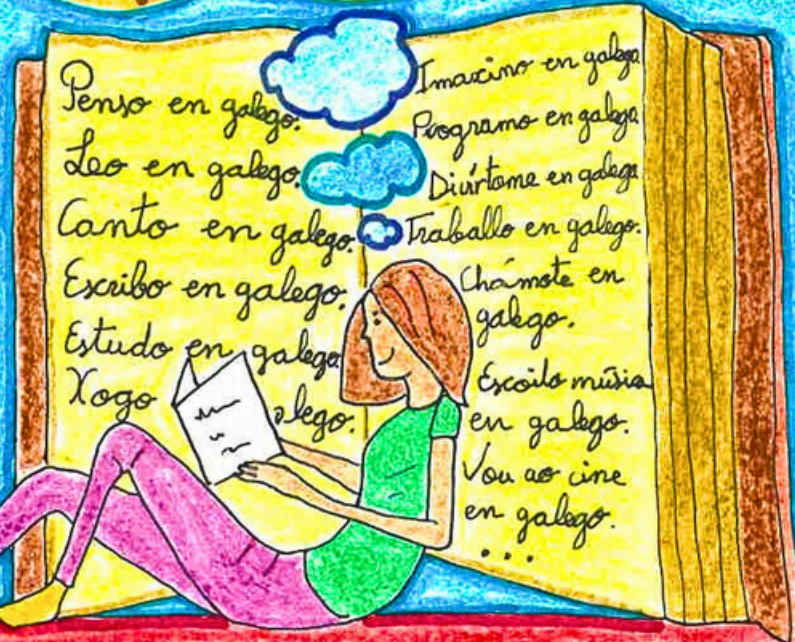 Penso en galego.
Leo en galego.
Canto en galego.
Escribo en galego.
Estudo en galego
Xogo alego.
Imaxino en galego
Programo en galego
Divírtome en galego
Traballo en galego.
Chámote en
galego.
Escoito música
en galego.
Vou ao cine
en galego.
...